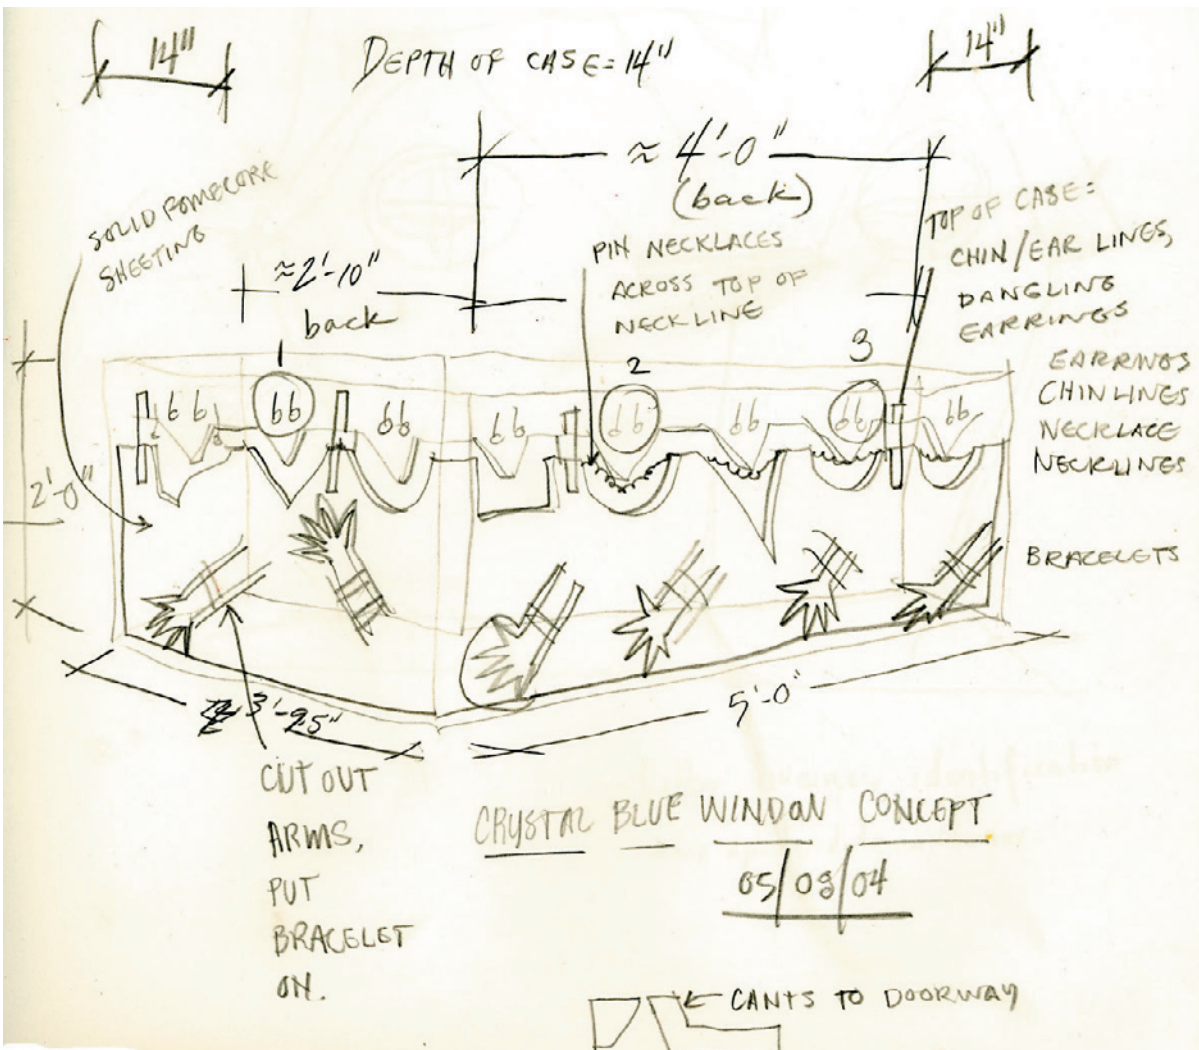 14"
DEPTH OF CASE = 14"
14"
≈ 4'-0"
(back)
SOLID FOMECORE
SHEETING
≈2'-10"
back
PIN NECKLACES
ACROSS TOP OF
NECKLINE
TOP OF CASE =
CHIN/EAR LINES,
DANGLING
EARRINGS
1
2
3
EARRINGS
CHINLINES
NECKLACE
NECKLINES
2'-0"
BRACELETS
5'-0"
CUT OUT
ARMS,
PUT
BRACELET
ON.
CRYSTAL BLUE WINDOW CONCEPT
05/03/04
CANTS TO DOORWAY